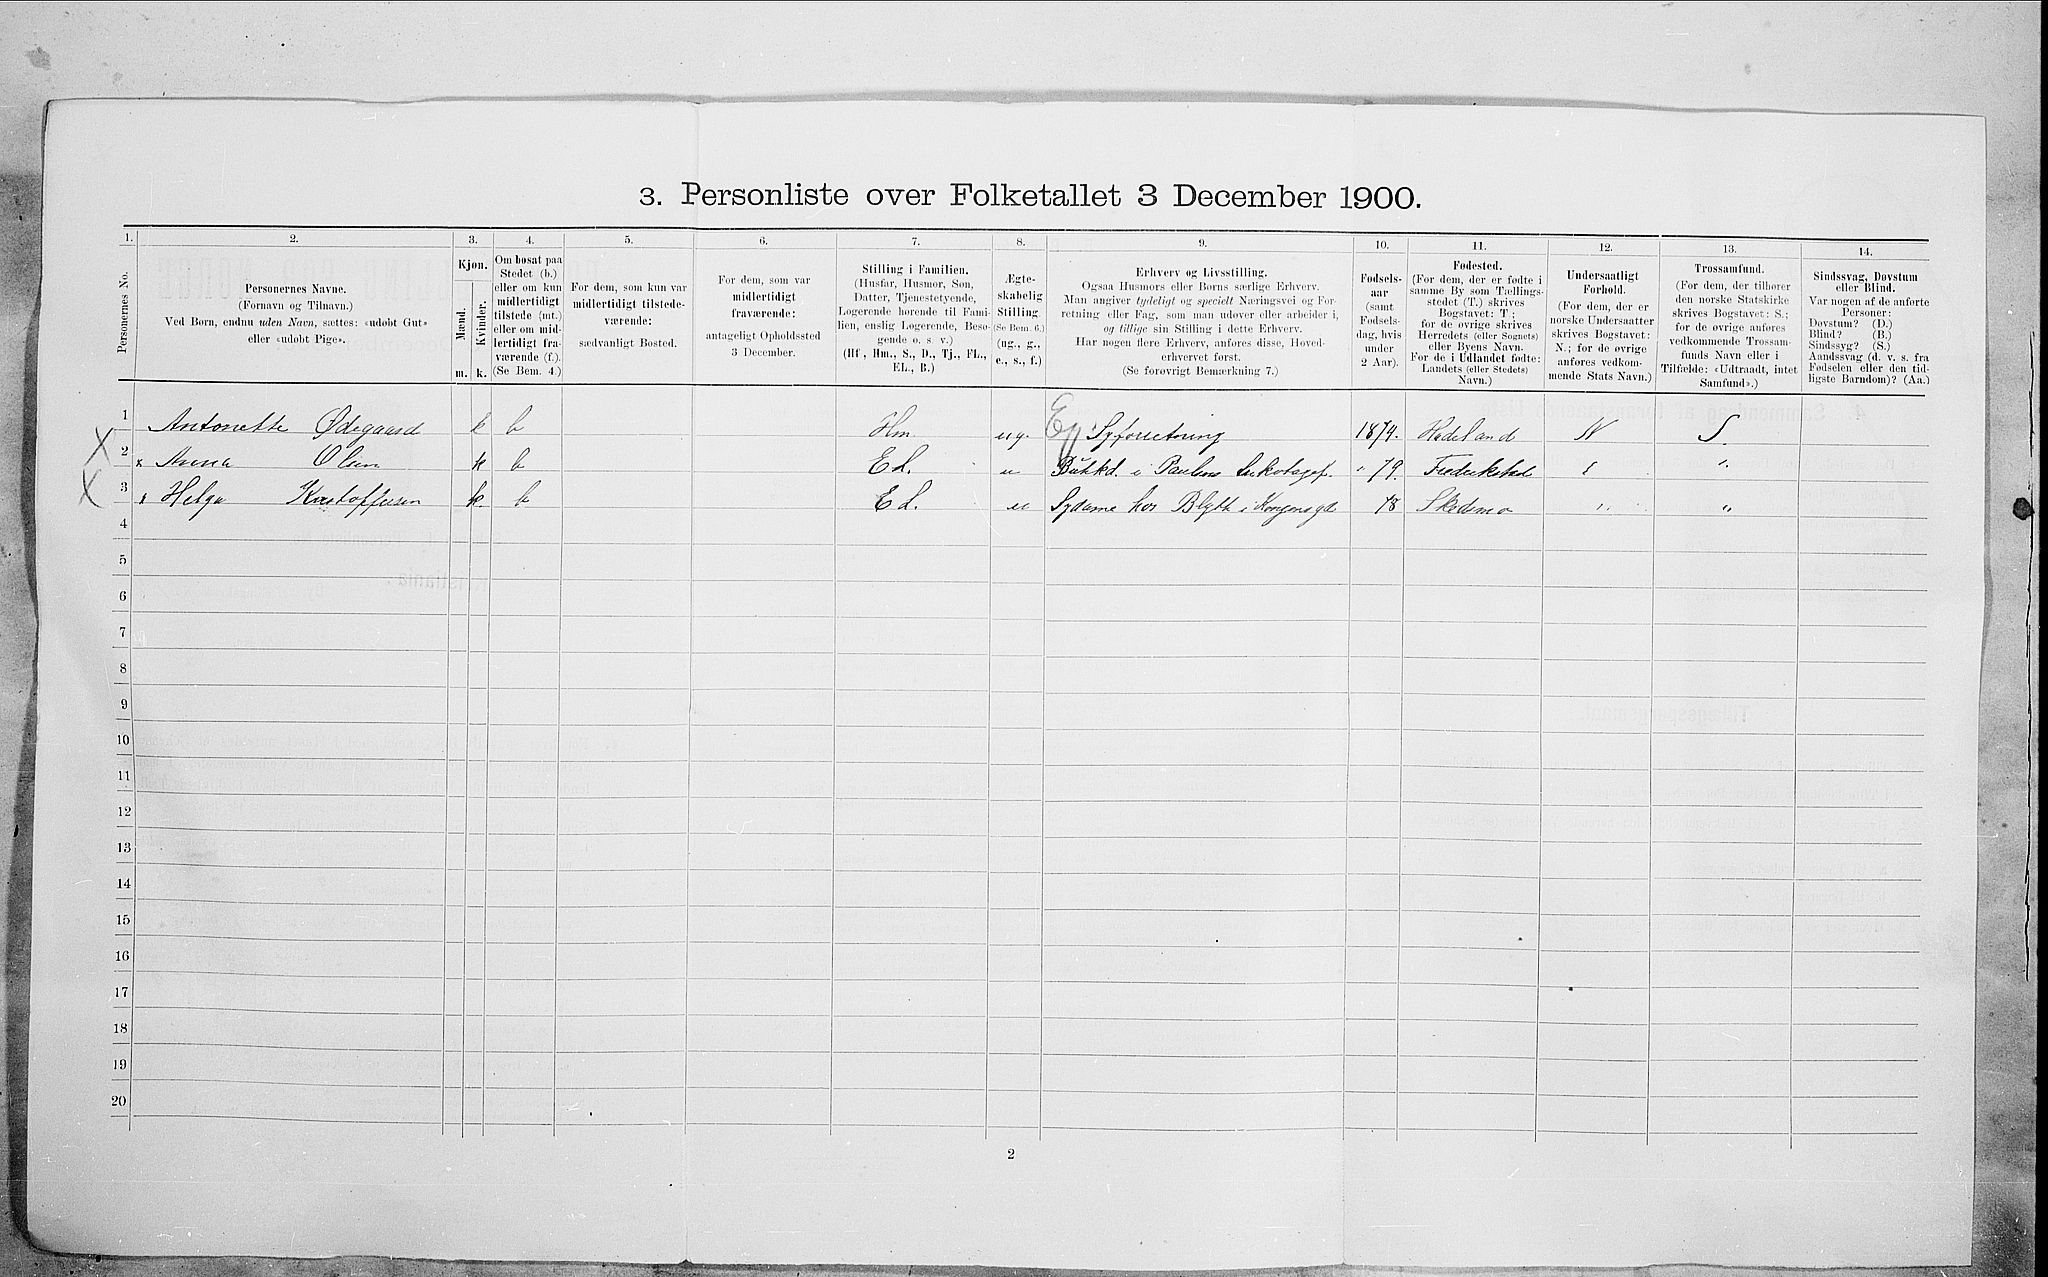 3. Personliste over Folketallet 3 December 1900.
1. 2. 3. 4. 5. 6. 7. 8. 9. 10. 11. 12. 13. 14.
Personernes No.
Personernes Navne.
(Fornavn og Tilnavn.)
Ved Børn, endnu uden Navn, sættes: «udøbt Gut»
eller «udøbt Pige».
Kjøn.
Mænd.
Kvinder.
m. k.
Om bosat paa
Stedet (b.)
eller om kun
midlertidigt
tilstede (mt.)
eller om mid-
lertidigt fra-
værende (f.).
(Se Bem. 4.)
For dem, som kun var
midlertidigt tilstede-
værende:
sædvanligt Bosted.
For dem, som var
midlertidigt
fraværende:
antageligt Opholdssted
3 December.
Stilling i Familien.
(Husfar, Husmor, Søn,
Datter, Tjenestetyende,
Logerende hørende til Fami-
lien, enslig Logerende, Besø-
gende o. s. v.)
(Hf., Hm., S., D., Tj., FL.,
EL., B.)
Ægte-
skabelig
Stilling.
(Se Bem. 6.)
(ug., g.,
e., s., f.)
Erhverv og Livsstilling.
Ogsaa Husmors eller Børns særlige Erhverv.
Man angiver tydeligt og specielt Næringsvei og For-
retning eller Fag, som man udøver eller arbeider i,
og tillige sin Stilling i dette Erhverv.
Har nogen flere Erhverv, anføres disse, Hoved-
erhvervet først.
(Se forøvrigt Bemærkning 7.)
Fødsels-
aar
(samt
Fødsels-
dag, hvis
under
2 Aar).
Fødested.
(For dem, der er fødte i
samme By som Tællings-
stedet (T.) skrives
Bogstavet: T;
for de øvrige skrives
Herredets (eller Sognets)
eller Byens Navn.
For de i Udlandet fødte:
Landets (eller Stedets)
Navn.)
Undersaatligt
Forhold.
(For dem, der er
norske Undersaatter
skrives Bogstavet:
N.; for de øvrige
anføres vedkom-
mende Stats Navn.)
Trossamfund.
(For dem, der tilhører
den norske Statskirke
skrives Bogstavet: S.;
for de øvrige anføres
vedkommende Trossam-
funds Navn eller i
Tilfælde: «Udtraadt, intet
Samfund».)
Sindssvag, Døvstum
eller Blind.
Var nogen af de anførte
Personer:
Døvstum? (D.)
Blind? (B.)
Sindssyg? (S.)
Aandssvag (d. v. s. fra
Fødselen eller den tid-
ligste Barndom)? (Aa.)
1 Antonette Ødegaard k b Hm ug. Syforretning 1874. Hadeland N S.
X 2 x Anna Olsen k b EL. u i " 79. Fredrikstad " "
X 3 x Helga Kristoffersen k. b EL. u Sydame hos Blyth i Kongensgd 78 Skedsmo " "
4
5
6
7
8
9
10
11
12
13
14
15
16
17
18
19
20
2